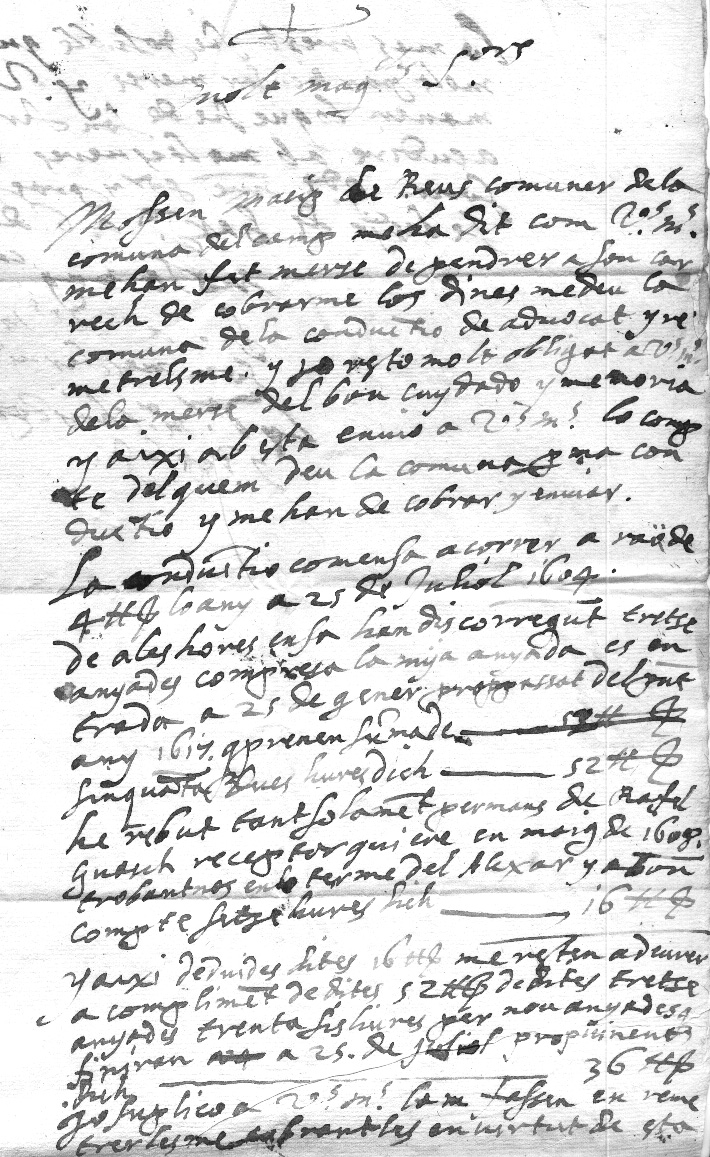 molt mag.s S.ors
Mossen Matig de Reus comuner dela
comuna del camp me ha dit com V.S m.s
me han fet merse de pendrer a son car
rech de cobrarme los dines me deu la
comuna de la conductio de advocat y re
metrelsme. y jo resto molt obligat a V.S m.s
dela merse del bon cuydado y memoria
y aixi ab esta envio a V.S m.s lo comp
te del quem deu la comuna p ma con
ductio y me han de cobrar y enviar.
La conductio comensa a correr a rao de
4 ħ lo any a 25 de Juliol 1604.
de aleshores ensa han discorregut tretse
anyades compresa la mija anyada es en
trada a 25 de gener propassat del pnt
any 1617. q prenen suma de
sinquanta dues liures dich 52 ħ
he rebut tant solamet per mans de Rafel
guasch receptor qui ere en maig de 1608.
trobantnos en lo terme del Alexar y a bon
compte setse liures dich 16 ħ
y aixi deduides dites 16 ħ me resten a deurer
a compliment de dites 52 ħ de dites tretse
anyades trenta sis liures per nou anyades
finiran a 25. de juliol propvinent
dich 36 ħ
jo suplico a V.S m.s lam fassen en reme
trerlesme cobrantles en virtut de esta